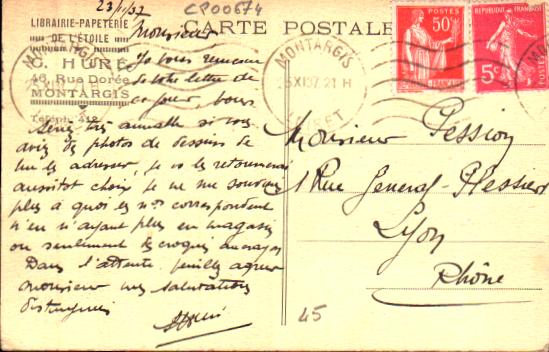 23/11/37
CP00674
LIBRAIRIE-PAPETERIE
DE L'ÉTOILE
G. HURÉ
46, Rue Dorée
MONTARGIS
Téléph. 412
CARTE POSTALE
Monsieur
Je vous remercie
de votre lettre de
ce jour, vous
serez très aimable si vous
avez des photos de dessins de
me les adresser, je vous les retournerai
aussitôt choix je ne me souviens
plus à quoi les nos correspondent
n'en n'ayant plus en magasin
ou seulement les croquis au crayon
Dans l'attente veuillez agréer
monsieur mes salutations
distinguées
MONTARGIS
25 XI 37 21 H
LOIRET
POSTES
50c
REPUBLIQUE FRANÇAISE
5c
Monsieur Pession
1 Rue General-Plessier
Lyon
Rhône
45